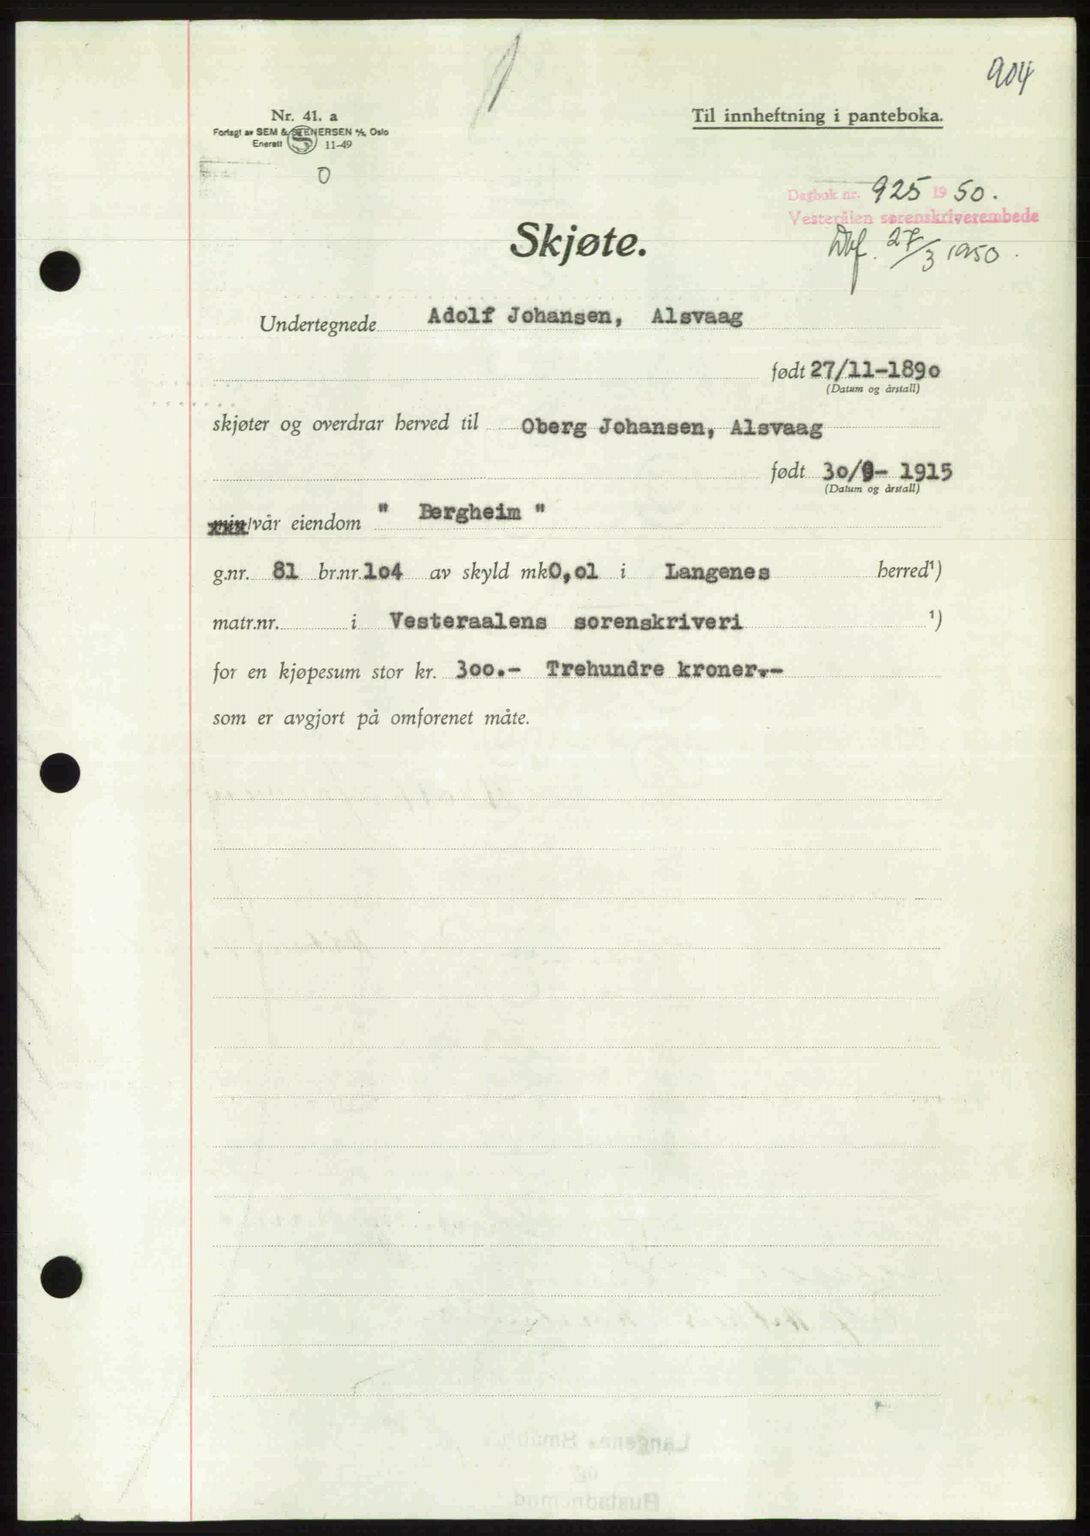 904
Nr. 41. a
Til innheftning i panteboka.
Forlagt av SEM & STENERSEN A/S, Oslo
Enerett 11-49
0
Dagbok nr. 925 1950.
Vesterålen sorenskriverembede
Dbf. 27/3 1950.
Skjøte.
Undertegnede Adolf Johansen, Alsvaag
født 27/11-1890
(Datum og årstall)
skjøter og overdrar herved til Oberg Johansen, Alsvaag
født 30/9- 1915
(Datum og årstall)
min/vår eiendom " Bergheim "
g.nr. 81 br.nr. 1o4 av skyld mk 0,o1 i Langenes herred¹)
matr.nr. i Vesteraalens sorenskriveri ¹)
for en kjøpesum stor kr. 3oo.- Trehundre kroner.-
som er avgjort på omforenet måte.